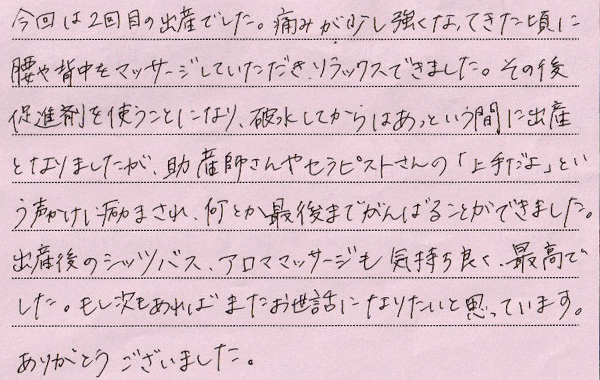 今回は2回目の出産でした。痛みが少し強くなってきた頃に
腰や背中をマッサージしていただき、リラックスできました。その後
促進剤を使うことになり、破水してからはあっという間に出産
となりましたが、助産師さんやセラピストさんの「上手だよ」とい
う声かけに励まされ、何とか最後までがんばることができました。
出産後のシッツバス、アロママッサージも気持ち良く、最高で
した。もし次もあればまたお世話になりたいと思っています。
ありがとうございました。